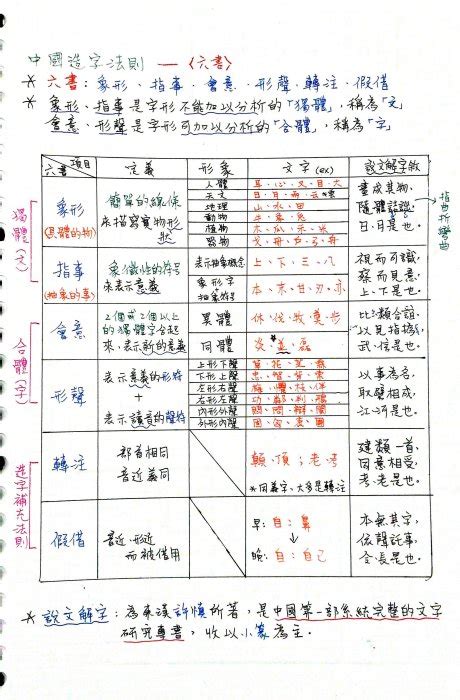 中國造字法則 —〈六書〉
* 六書：象形、指事、會意、形聲、轉注、假借
* 象形、指事是字形不能加以分析的「獨體」，稱為「文」
會意、形聲是字形可加以分析的「合體」，稱為「字」
六書 項目 定義 形象 文字(ex) 說文解字敘
獨體(文)
象形
(具體的物)
簡單的線條
來描寫實物形
狀
人體
天文
地理 山、水、田
動物 牛、象、兔
植物
器物
畫成其物，
隨體詰詘，
日、月是也。
指曲折彎曲
指事
(抽象的事)
象徵性的符號
來表示意義
表示抽象概念 上、下、三、八
象形字
+
抽象符號
本、末、甘、刃、亦
視而可識，
察而見意，
上、下是也。
合體(字)
會意
2個或2個以上
的獨體字合起
來，表示新的意義
異體 休、信、牧、莫、步
同體 炎、姦、磊
比類合誼，
以見指撝，
武、信是也。
形聲
表示意義的形符
+
表示讀音的聲符
上形下聲
下形上聲
左形右聲
右形左聲
內形外聲
外形內聲
以事為名，
取譬相成，
江、河是也。
造字補充法則
轉注
部首相同
音近義同
顛、頂；老、考
*同義字，大多是轉注
建類一首，
同意相受，
考、老是也。
假借
音近、形近
而被借用
早：自：鼻
晚：自：自己
本無其字，
依聲託事，
令、長是也。
* 說文解字：為東漢許慎所著，是中國第一部系統完整的文字
研究專書，收以小篆為主．